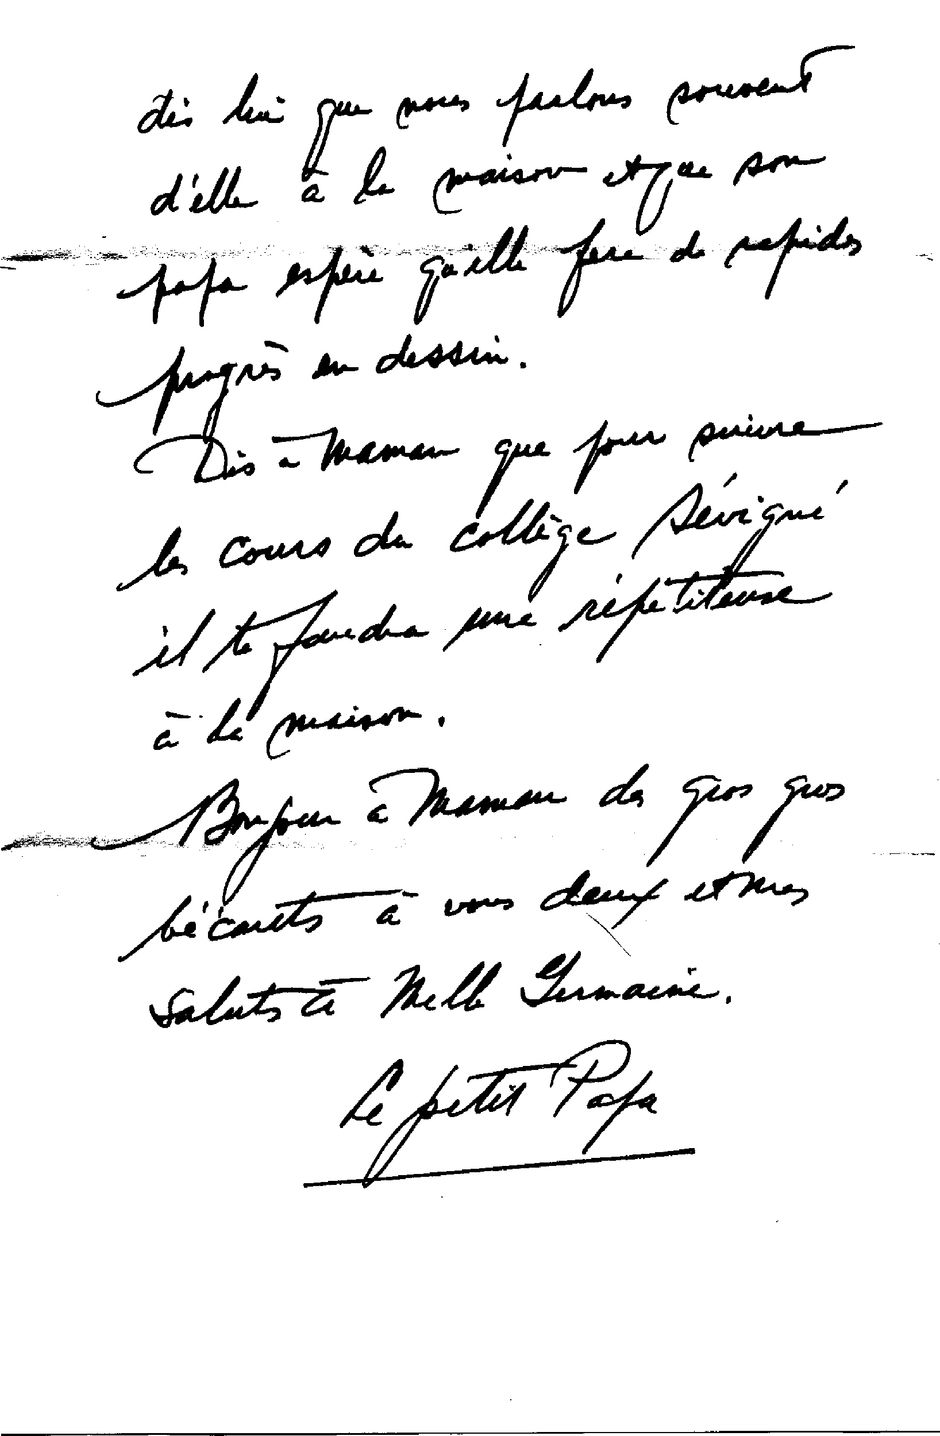 dis lui que nous parlons souvent
d'elle à la maison et que son
papa espère qu'elle fera de rapides
progrès en dessin.
Dis à Maman que pour suivre
les cours du collège Sévigné
il te faudra une répétiteuse
à la maison.
Bonjour à Maman des gros gros
bécauts à vous deux et mes
saluts à Melle Germaine.
Le petit Papa